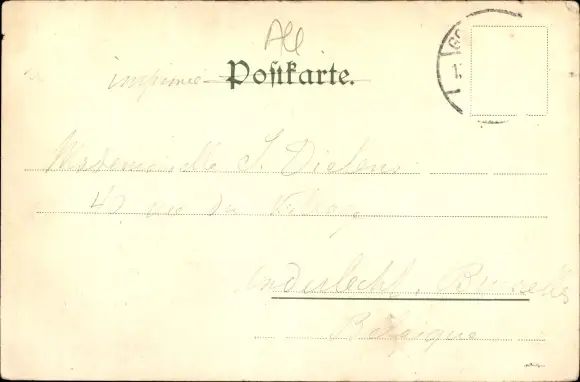 All
imprimé Postkarte.
GO
Mademoiselle S. Dielens
rue du
Anderlecht, Bruxelles
Belgique